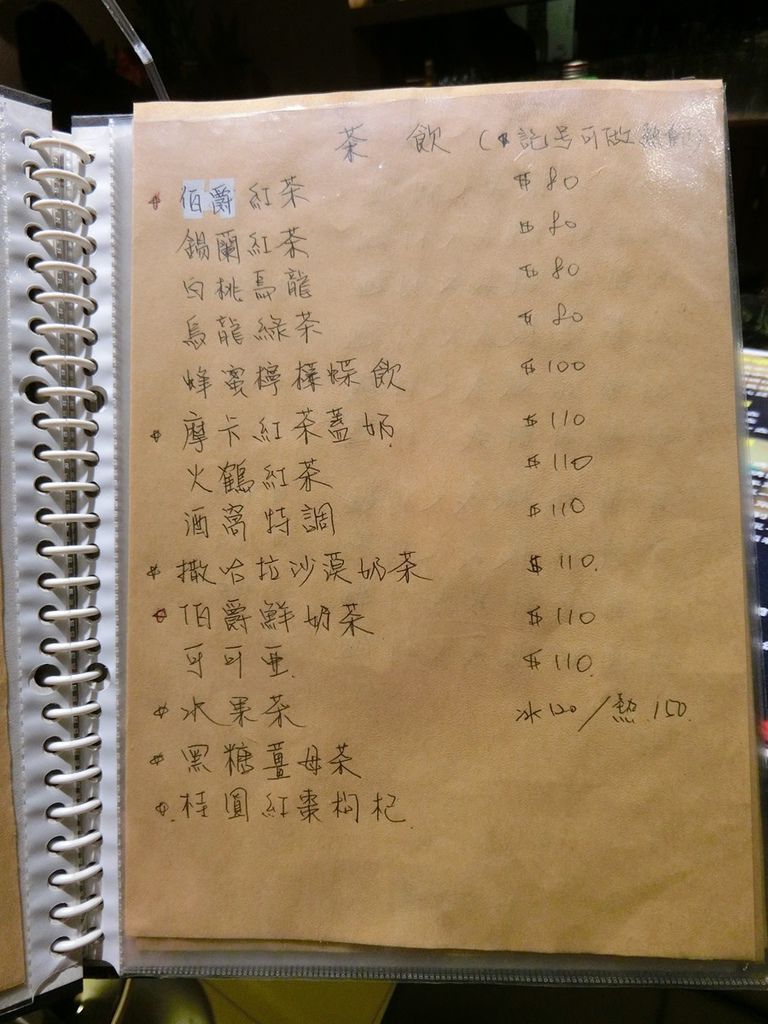 茶 飲 (◆記号可做熱飲)
◆ 伯爵紅茶 $80
錫蘭紅茶 $80
白桃烏龍 $80
烏龍綠茶 $80
蜂蜜檸檬蝶飲 $100
◆ 摩卡紅茶蓋奶 $110
火鶴紅茶 $110
酒窩特調 $110
◆ 撒哈拉沙漠奶茶 $110.
◆ 伯爵鮮奶茶 $110
可可亜 $110.
◆ 水果茶 冰120/熱150.
◆ 黑糖薑母茶
◆ 桂圓紅棗枸杞